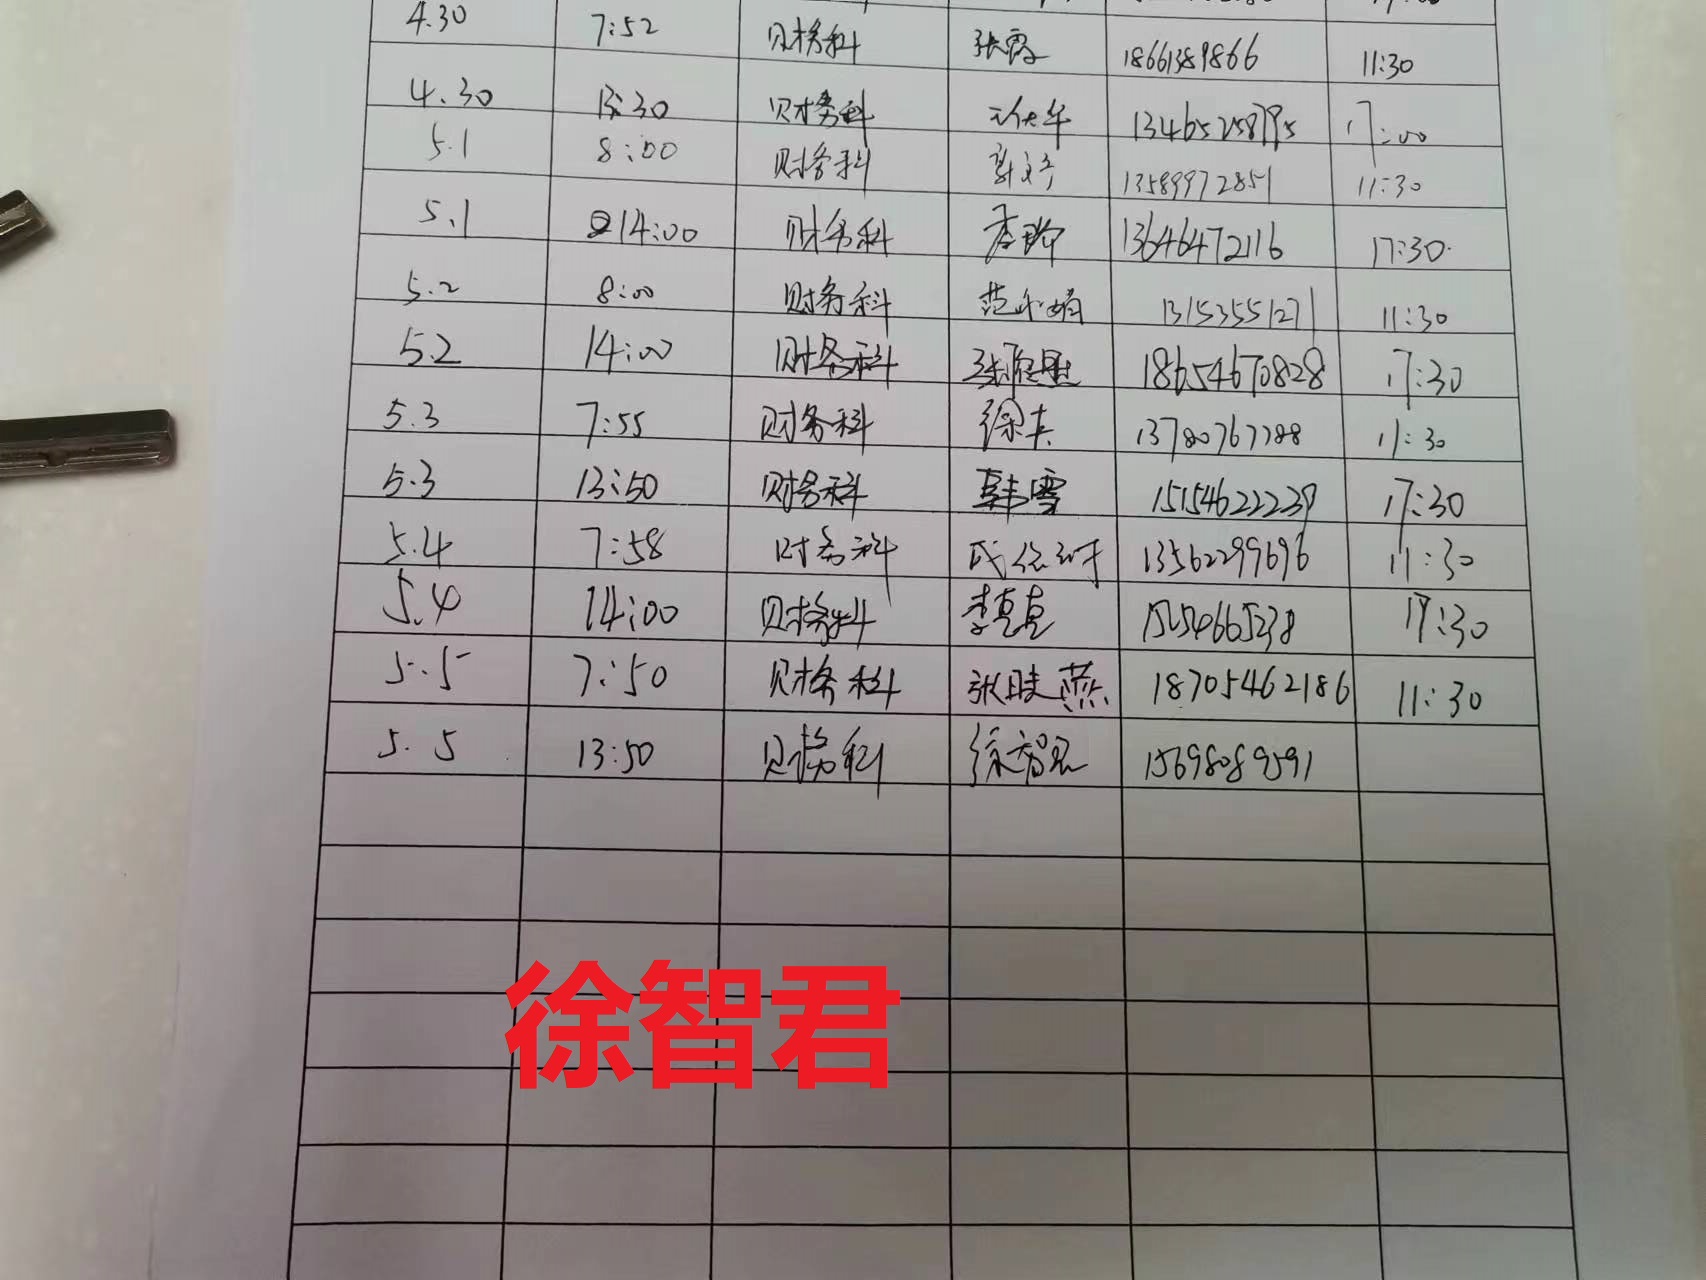 4.30 7:52 财务科 张霞 18661389866 11:30
4.30 13:30 财务科 13465258795 17:00
5.1 8:00 财务科 13589972851 11:30
5.1 14:00 财务科 李玲 13646472116 17:30
5.2 8:00 财务科 13153551271 11:30
5.2 14:00 财务科 18654670828 17:30
5.3 7:55 财务科 徐夫 13780767788 11:30
5.3 13:50 财务科 韩雪 15154622239 17:30
5.4 7:58 财务科 13562299696 11:30
5.4 14:00 财务科 李真真 15154665238 17:30
5.5 7:50 财务科 张晓燕 18705462186 11:30
5.5 13:50 财务科 徐智君 15698089591
徐智君